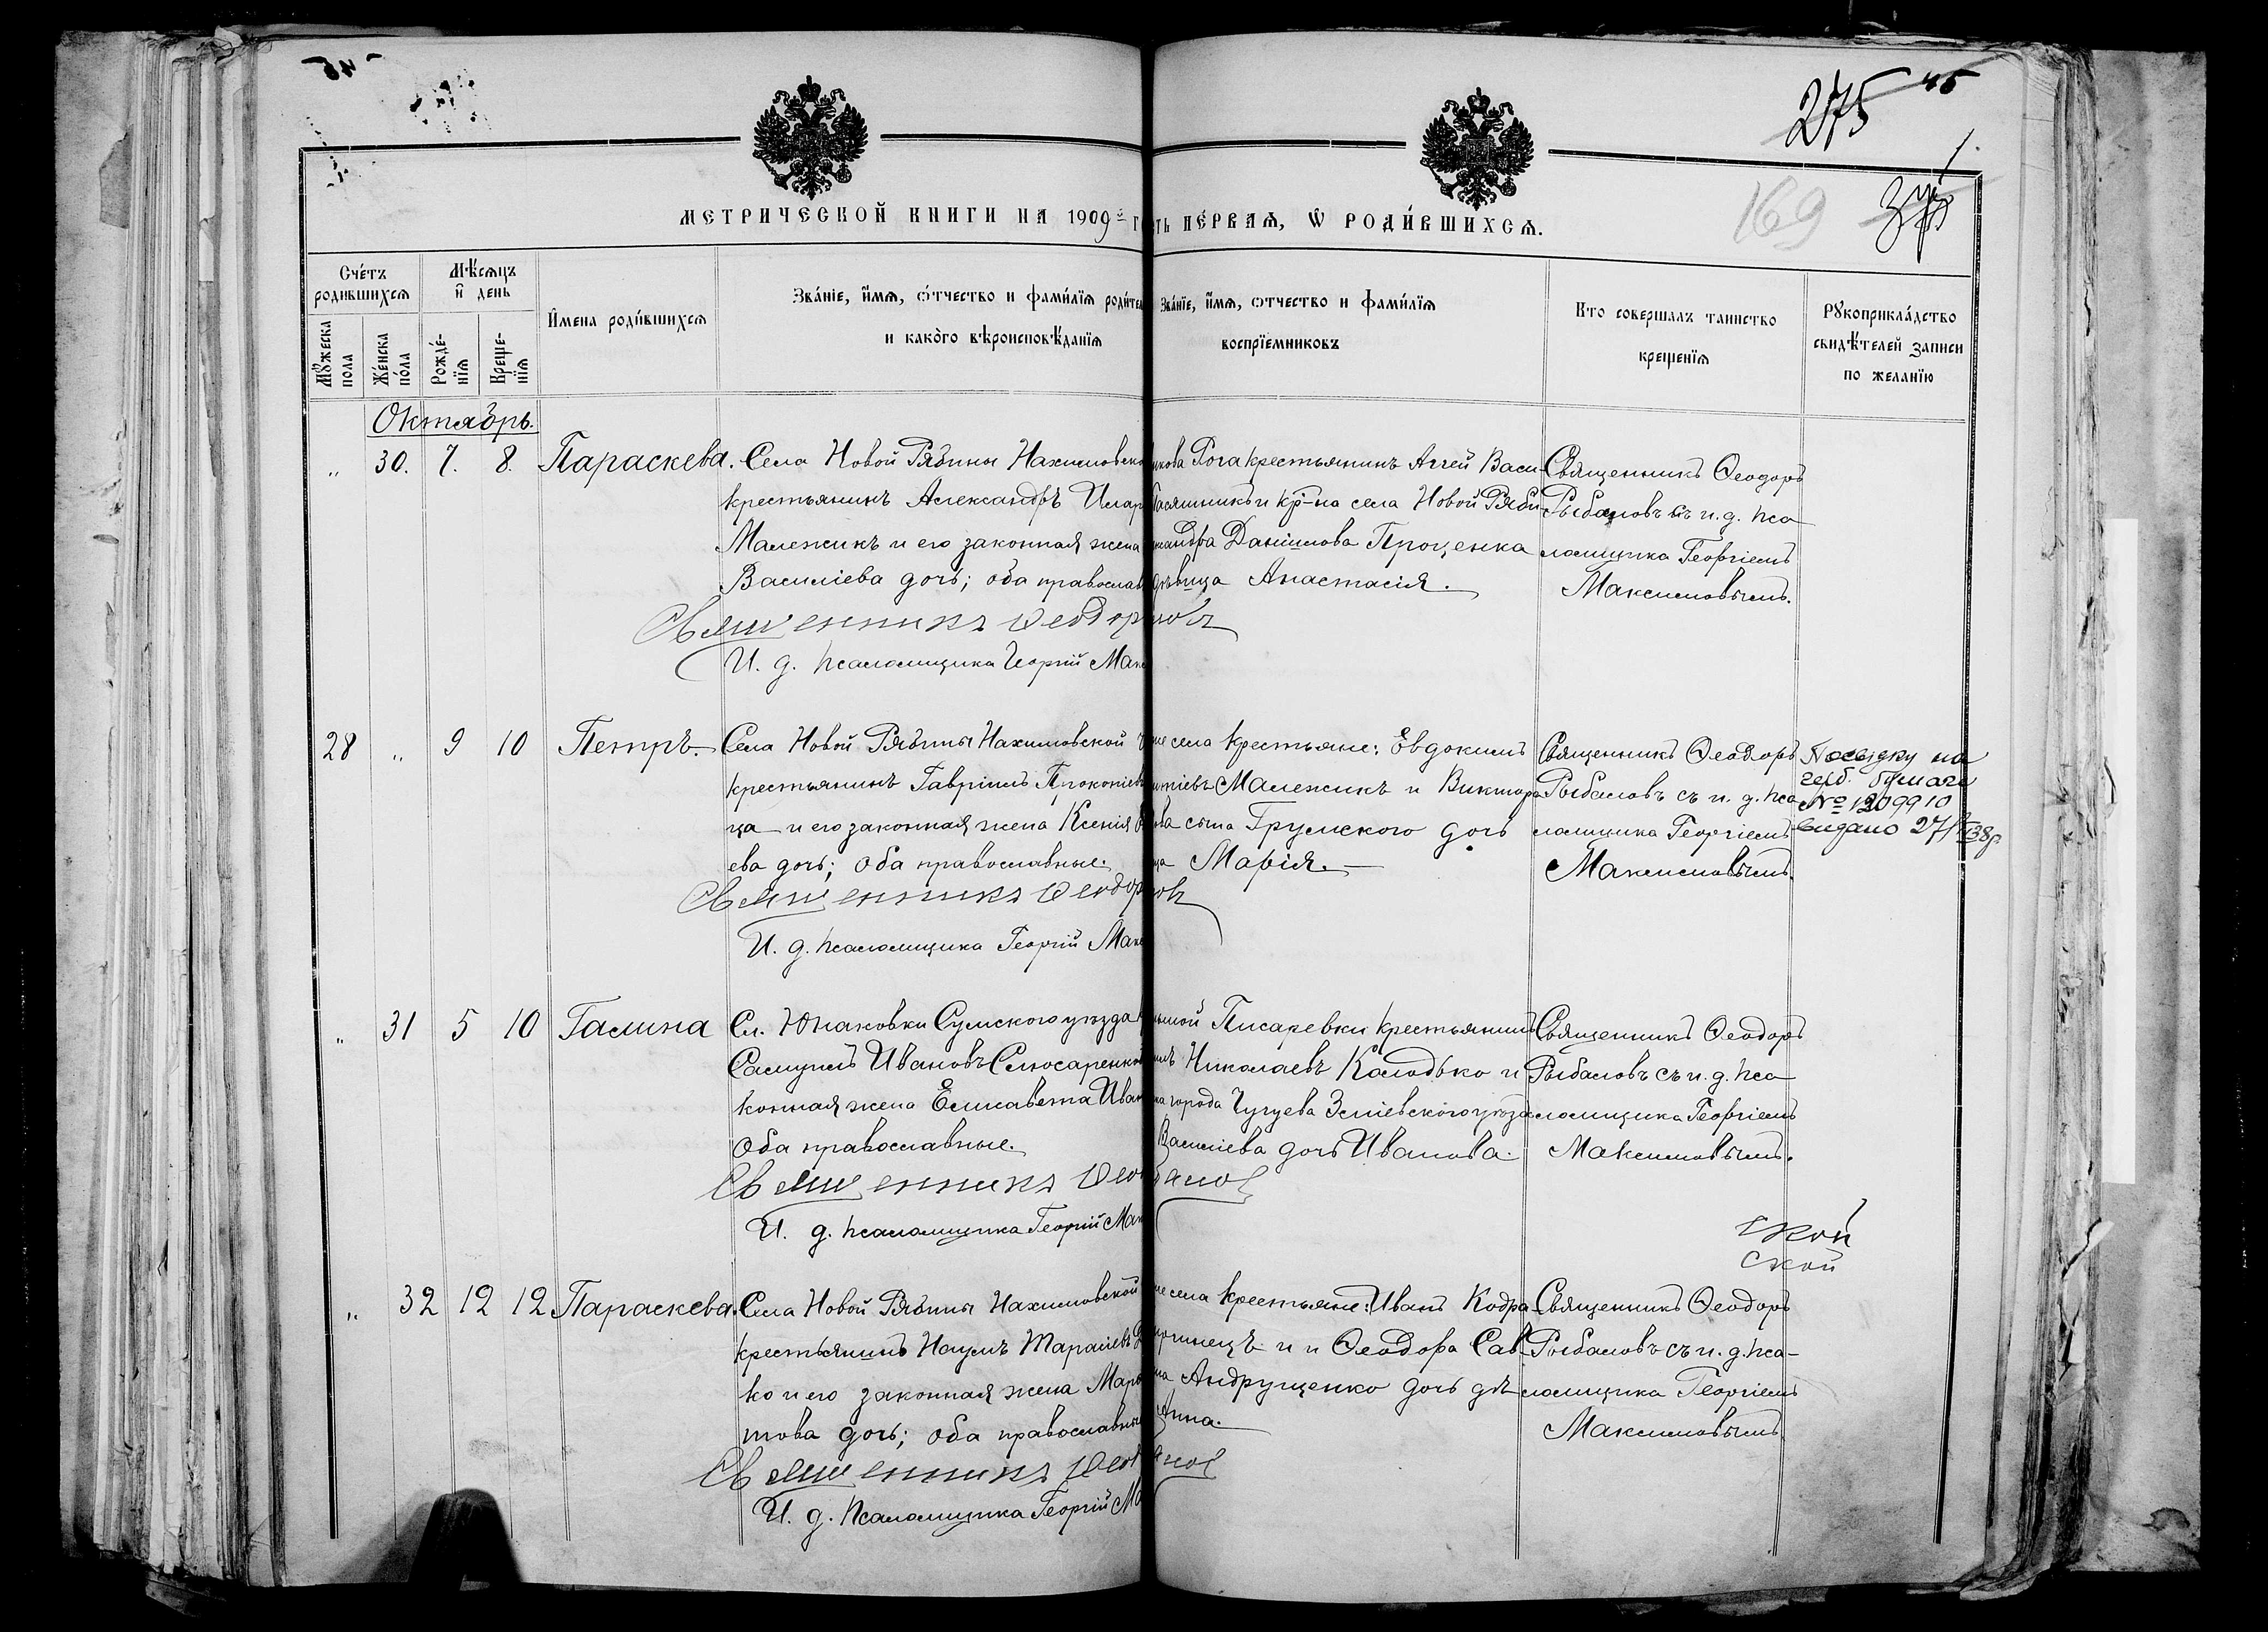 45
275 45
1.
169
МЕТРИЧЕСКОЙ КНИГИ НА 1909й г
сть пе́рваѧ, Ѡ роди́вшихсѧ.
Сче́тъ родившихсѧ
Мꙋжеска пола
Же́нска по́ла
Мѣ́сѧцъ и҆ день
Рожде́-нїѧ
Креще-нїѧ
И҆мена роди́вшихсѧ
Зва́нїе, и҆́мѧ, ѻ҆́тчество и фами́лїѧ роди́тел
и како̀го вѣроисповѣ́данїѧ
Зва́нїе, и҆́мѧ, ѻтчество и фами́лїѧ
воспрїемниковъ
Кто совершалъ таинство
крещенїѧ
Рꙋкоприкла́дство
свидѣ́телей записи
по желанїю
Октябрь.
" 30. 7. 8. Параскева.
Села Новой Рябины Нахимовско
крестьянинъ Александръ Илар
Малежикъ и его законная жена
Василіева дочь; оба православ
Священникъ Ѳеодор
И. д. псаломщика Георгій Мак
кова Рога крестьянинъ Аггей Васи-
и кр-на села Новой Ряби-
ксандра Даніилова Проценка
дѣвица Анастасія.
Священникъ Ѳеодоръ
Рыбаловъ съ и. д. пса
ломщика Георгіемъ
Максимовымъ.
28 " 9 10 Петръ.
Села Новой Рябины Нахимовской
крестьянинъ Гавріилъ Прокопіевъ
ца и его законная жена Ксенія
ева дочь; оба православные.
Священникъ Ѳеодор
И. д. псаломщика Георгій Мак
же села крестьяне: Евдокимъ
Малежикъ и Виктора
ова сына Грумского дочь
ца Марія.
Священникъ Ѳеодоръ
Рыбаловъ съ и. д. пса
ломщика Георгіемъ
Максимовымъ.
на
герб. бумаге
№ 1209910
видано 27/ 38р.
" 31 5 10 Галина
Сл. Юнаковки Сумского уѣзда
Самуилъ Ивановъ Слюсаренко
конная жена Елисавета Иван
Оба православные.
Священникъ Ѳео
И. д. псаломщика Георгій Мак
ьшой Писаревки крестьянинъ
Николаевъ Колодько и
на города Чугуева Зміевского уѣзда
Василіева дочь Иванова.
Священникъ Ѳеодоръ
Рыбаловъ съ и. д. пса
ломщика Георгіемъ
Максимовымъ.
ской
ской
" 32 12 12 Параскева.
Села Новой Рябины Нахимовской
крестьянинъ Наумъ Тарасіевъ
ко и его законная жена Мар
това дочь; оба православны
Священникъ Ѳео
И. д. псаломщика Георгій Ма
же села крестьяне: Иванъ Кодра-
и и Ѳеодора Сав-
на Андрущенко дочь дѣ
Анна.
Священникъ Ѳеодоръ
Рыбаловъ съ и. д. пса-
ломщика Георгіемъ
Максимовымъ.